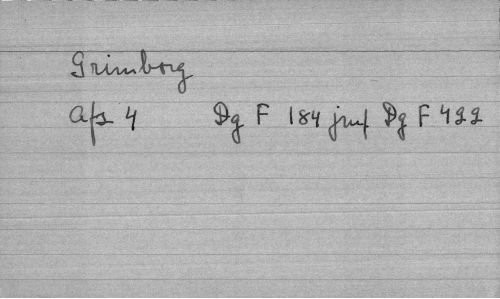 Grimborg
Afs 4 Dg F 184 jmf Dg F 422